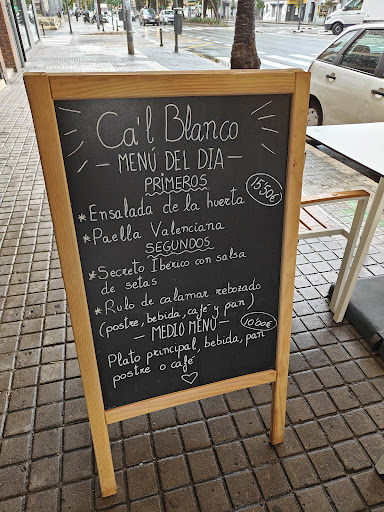 Ca'l Blanco
— MENÚ DEL DIA —
PRIMEROS
15'50€
*Ensalada de la huerta
*Paella Valenciana
SEGUNDOS
*Secreto Ibérico con salsa
de setas
*Rulo de calamar rebozado
(postre, bebida, café y pan)
— MEDIO MENÚ —
10'00€
Plato principal, bebida, pan
postre o café